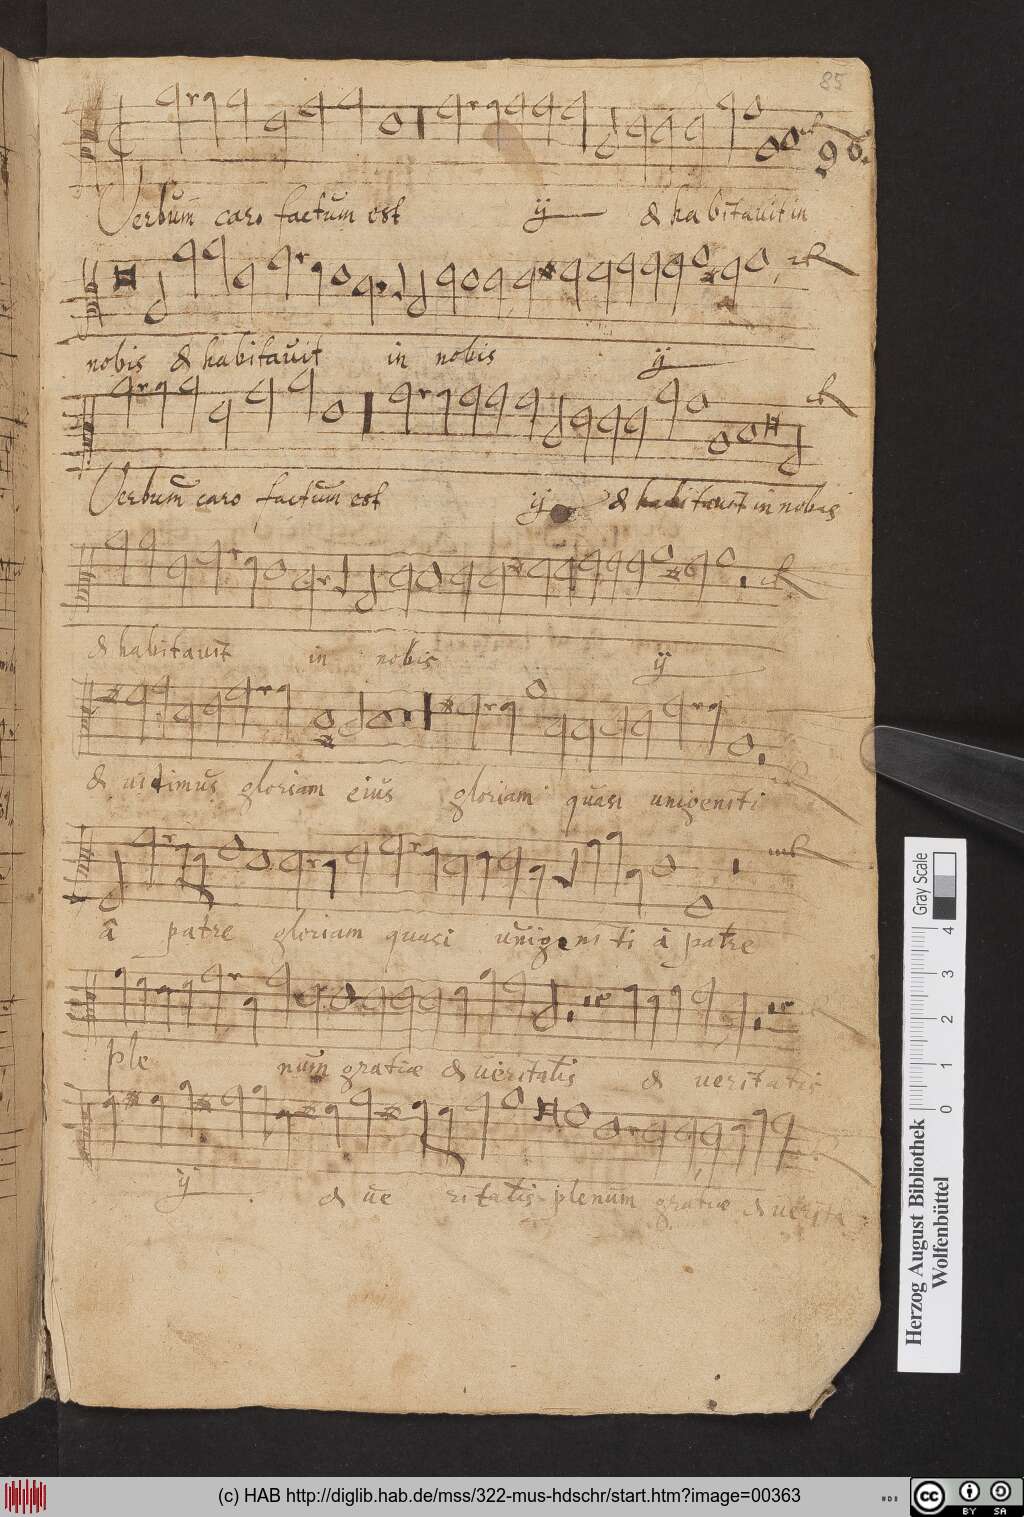 85
96.
Verbum̄ caro factum̄ est ij & habitauit in
nobis & habitauit in nobis ij
Verbum̄ caro factum̄ est ij & habitauit in nobis
& habitauit in nobis ij
& uidimus gloriam eius gloriam quasi unigeniti
â patre gloriam quasi unigeniti à patre
ple num gratiæ & ueritatis & ueritatis
ij & ue ritatis plenum gratiæ & uerita
Gray Scale
0 1 2 3 4
Herzog August Bibliothek
Wolfenbüttel
(c) HAB http://diglib.hab.de/mss/322-mus-hdschr/start.htm?image=00363
cc BY SA